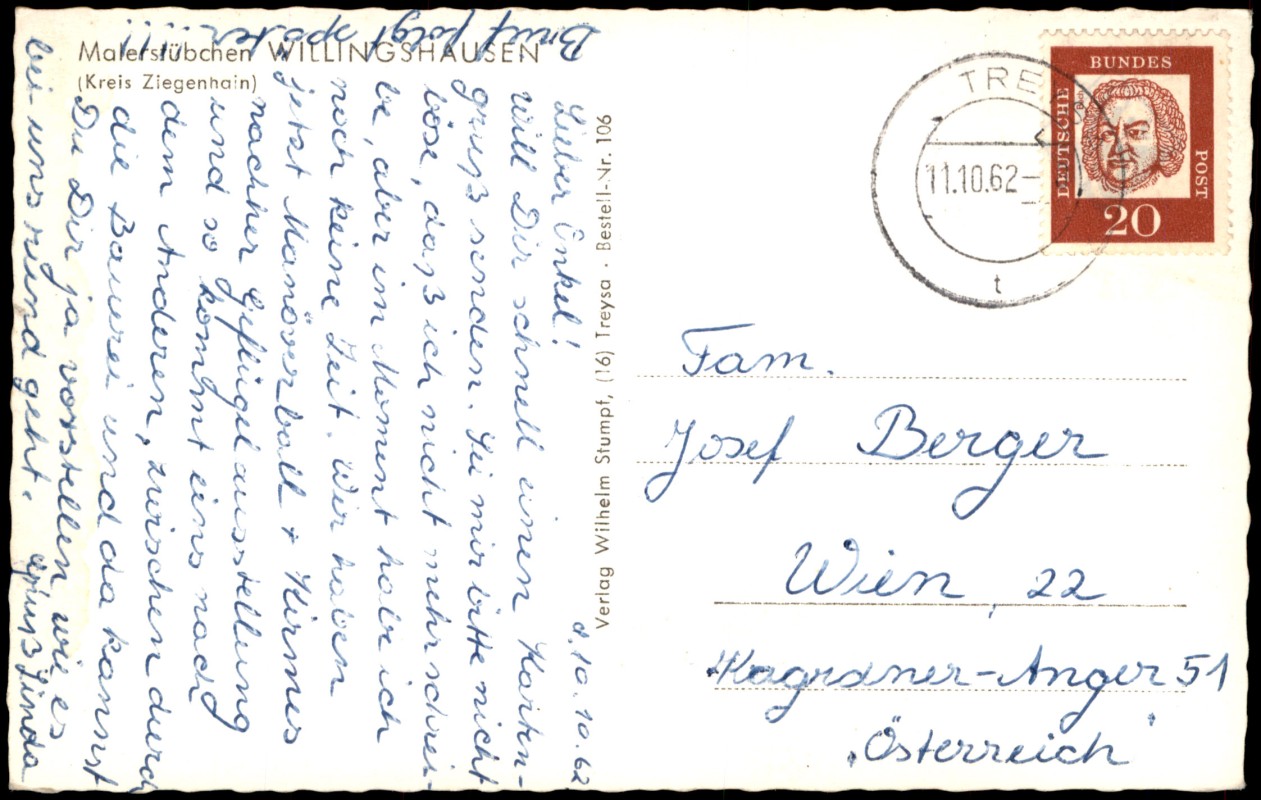 Malerstübchen WILLINGSHAUSEN
(Kreis Ziegenhain)
d. 10. 10. 62
Lieber Onkel!
Will Dir schnell einen Karten-
gruß senden. Sei mir bitte nicht
böse, daß ich nicht mehr schrei-
be, aber im Moment habe ich
noch keine Zeit. Wir haben
jetzt Manöverball + Kirmes
nachher Geflügelausstellung
und so kommt eins nach
dem Anderen, zwischen durch
die Bauerei und da kannst
Du Dir ja vorstellen wie es
bei uns rund geht. Gruß
Brief folgt später!!!!
Verlag Wilhelm Stumpf, (16) Treysa · Bestell-Nr. 106
TREYSA
11.10.62
t
DEUTSCHE
BUNDES
POST
20
Fam.
Josef Berger
Wien, 22
Kagraner-Anger 51
Österreich